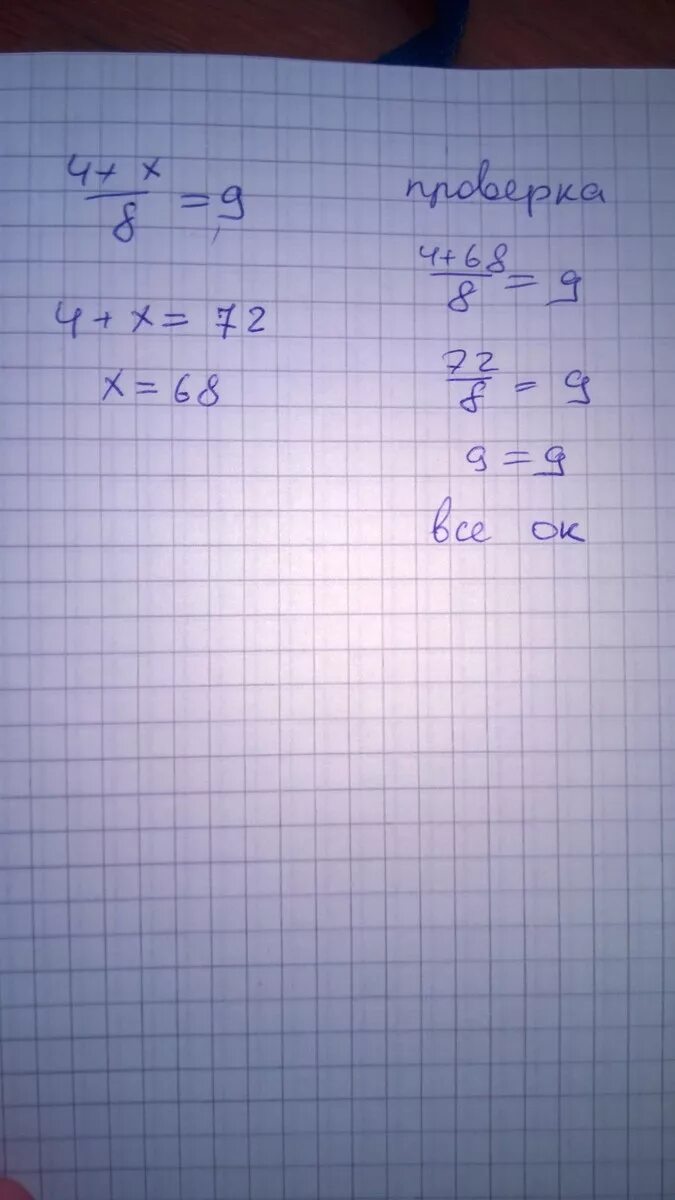 4 + x
8 = 9
4 + x = 72
x = 68
проверка
4 + 68
8 = 9
72
8 = 9
9 = 9
все ок